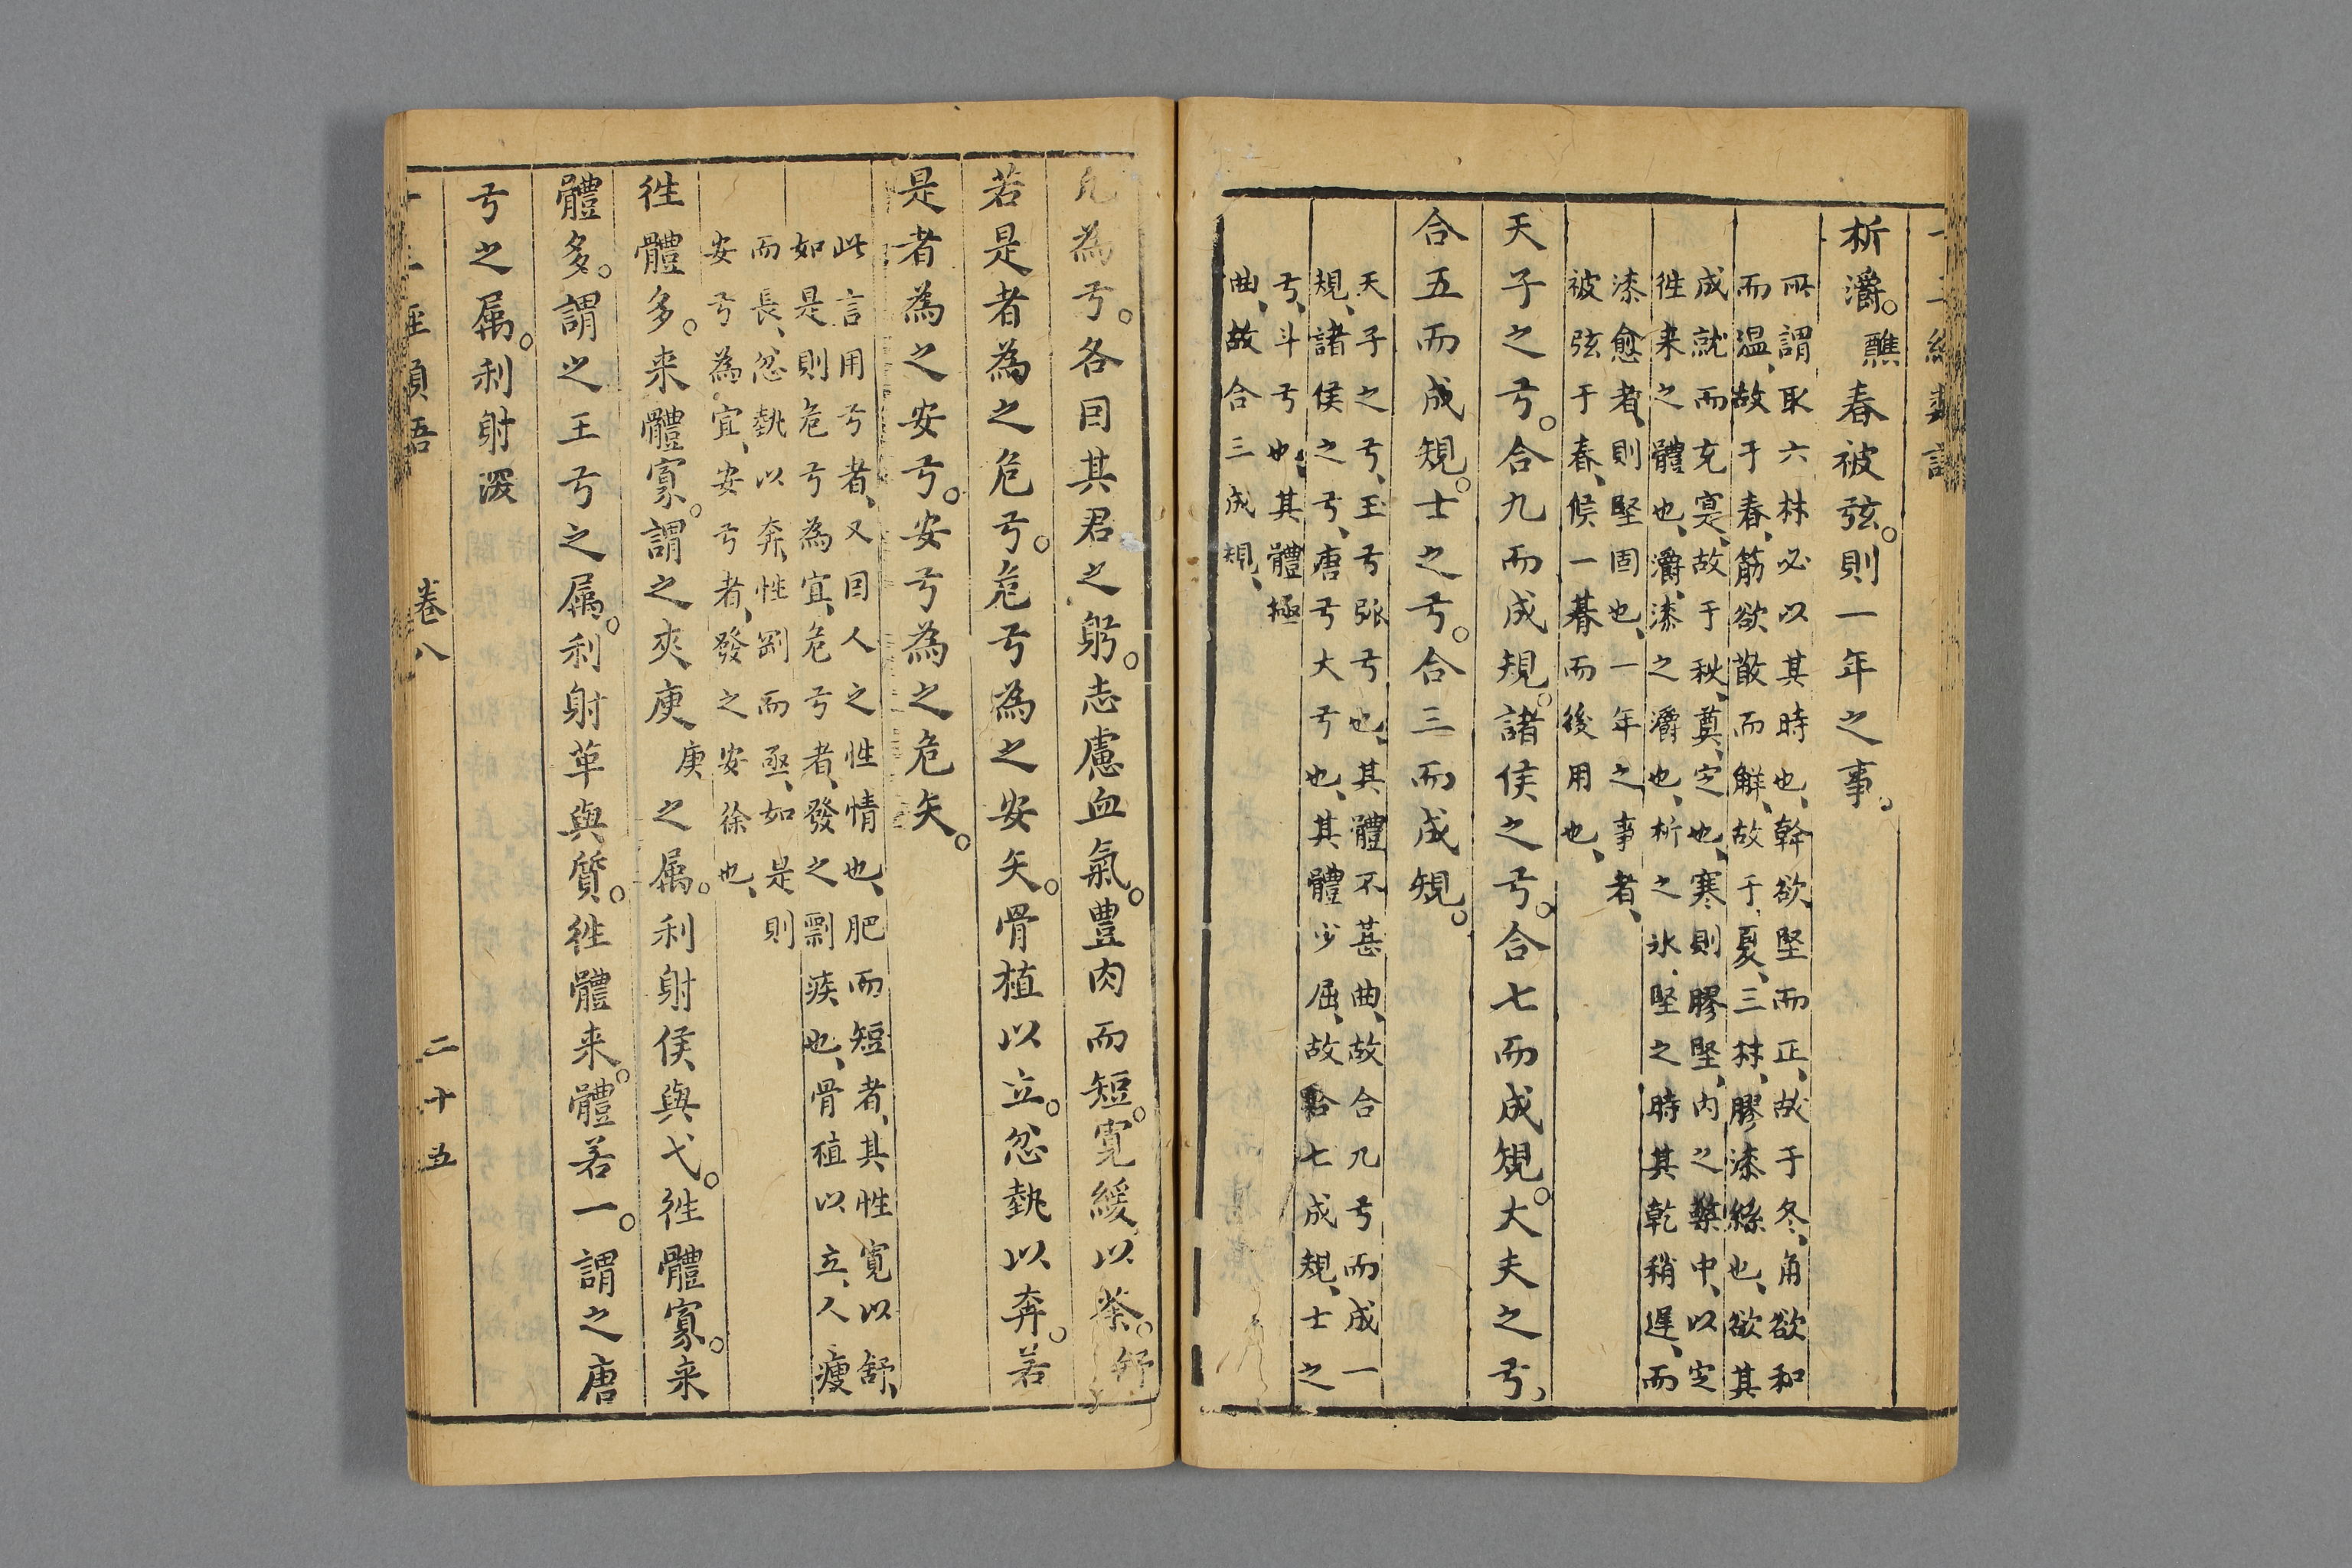 析灂。醮春被弦。則一年之事。
所謂取六材必以其時也、幹欲堅而正、故于冬、角欲和
而温、故于春、筋欲散而觧、故于夏、三材、膠漆絲也、欲其
成就而充寔、故于秋、奠、定也、寒則膠堅、内之檠中、以定
徃来之體也、灂、漆之灂也、析之氷堅之時其乾稍遅、而
漆愈者、則堅固也、一年之事者、
被弦于春、候一朞而後用也、
天子之弓。合九而成規。諸侯之弓。合七而成規。大夫之弓。
合五而成規。士之弓。合三而成規。
天子之弓、王弓弧弓也、其體不甚曲、故合九弓而成一
規、諸侯之弓、唐弓大弓也、其體少屈、故合七成規、士之
弓、斗弓也、其體極
曲、故合三成規、
凡為弓。各因其君之躬。志慮血氣。豊肉而短。寛緩以荼。舒
若是者為之危弓。危弓為之安矢。骨植以立。忿埶以奔。若
是者為之安弓。安弓為之危矢。
此言用弓者、又因人之性情也、肥而短者、其性寛以舒、
如是則危弓為宜、危弓者、發之剽疾也、骨植以立、人瘦
而長、忿埶以奔、性剛而亟、如是則
安弓為宜、安弓者、發之安徐也、
徃體多。来體寡。謂之夾庾庾之属。利射侯與弋。徃體寡。来
體多。謂之王弓之属。利射革與質。徃體来。體若一。謂之唐
弓之属。利射深
卷八
二十五